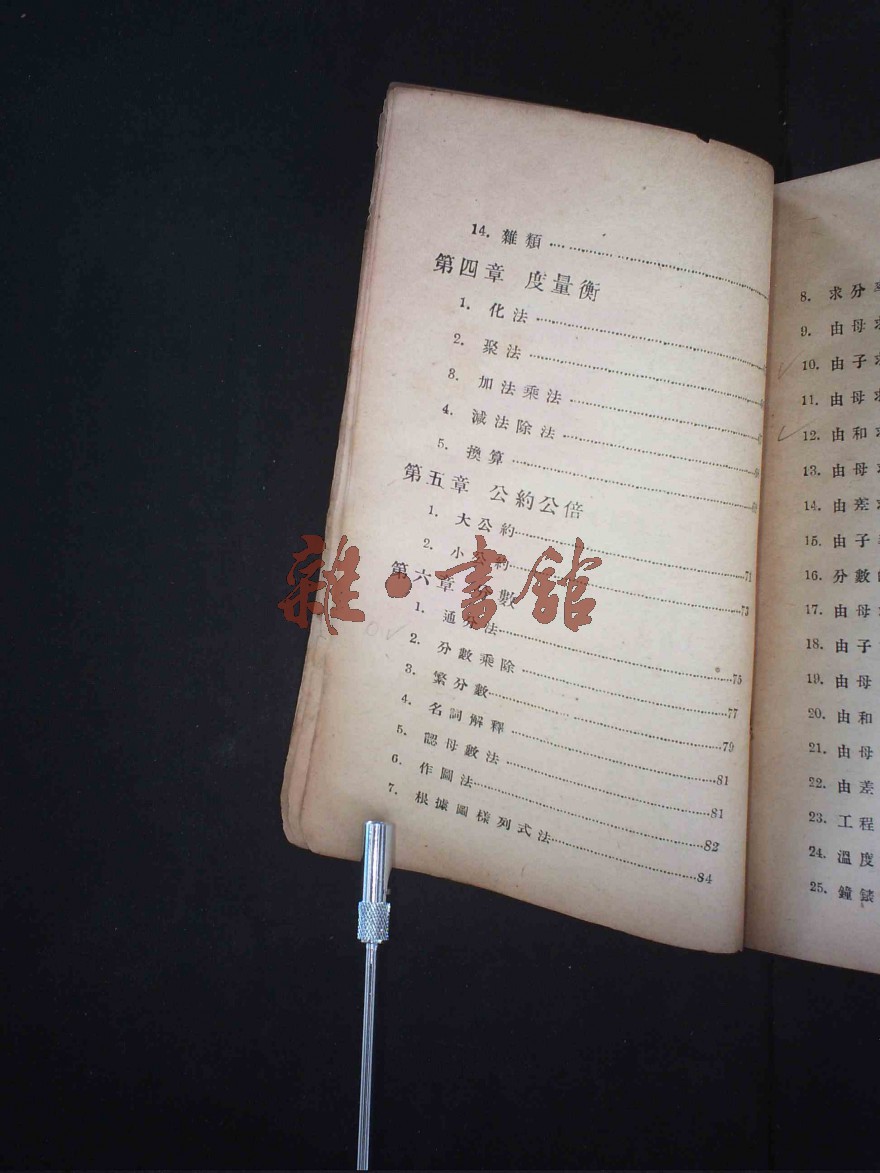 14. 雜類
第四章 度量衡
1. 化法
2. 聚法
8. 加法乘法
4. 減法除法
5. 換算
第五章 公約公倍
1. 大公約 71
2. 小公約 73
第六章 分數
1. 通分法 75
2. 分數乘除 77
3. 繁分數 79
4. 名詞解釋 81
5. 認母數法 81
6. 作圖法 82
7. 根據圖樣列式法 84
8. 求分
9. 由母求
10. 由子求
11. 由母求
12. 由和求
13. 由母求
14. 由差求
15. 由子
16. 分數
17. 由母
18. 由子
19. 由母
20. 由和
21. 由母
22. 由差
23. 工程
24. 溫度
25. 鐘錶
雜·書館